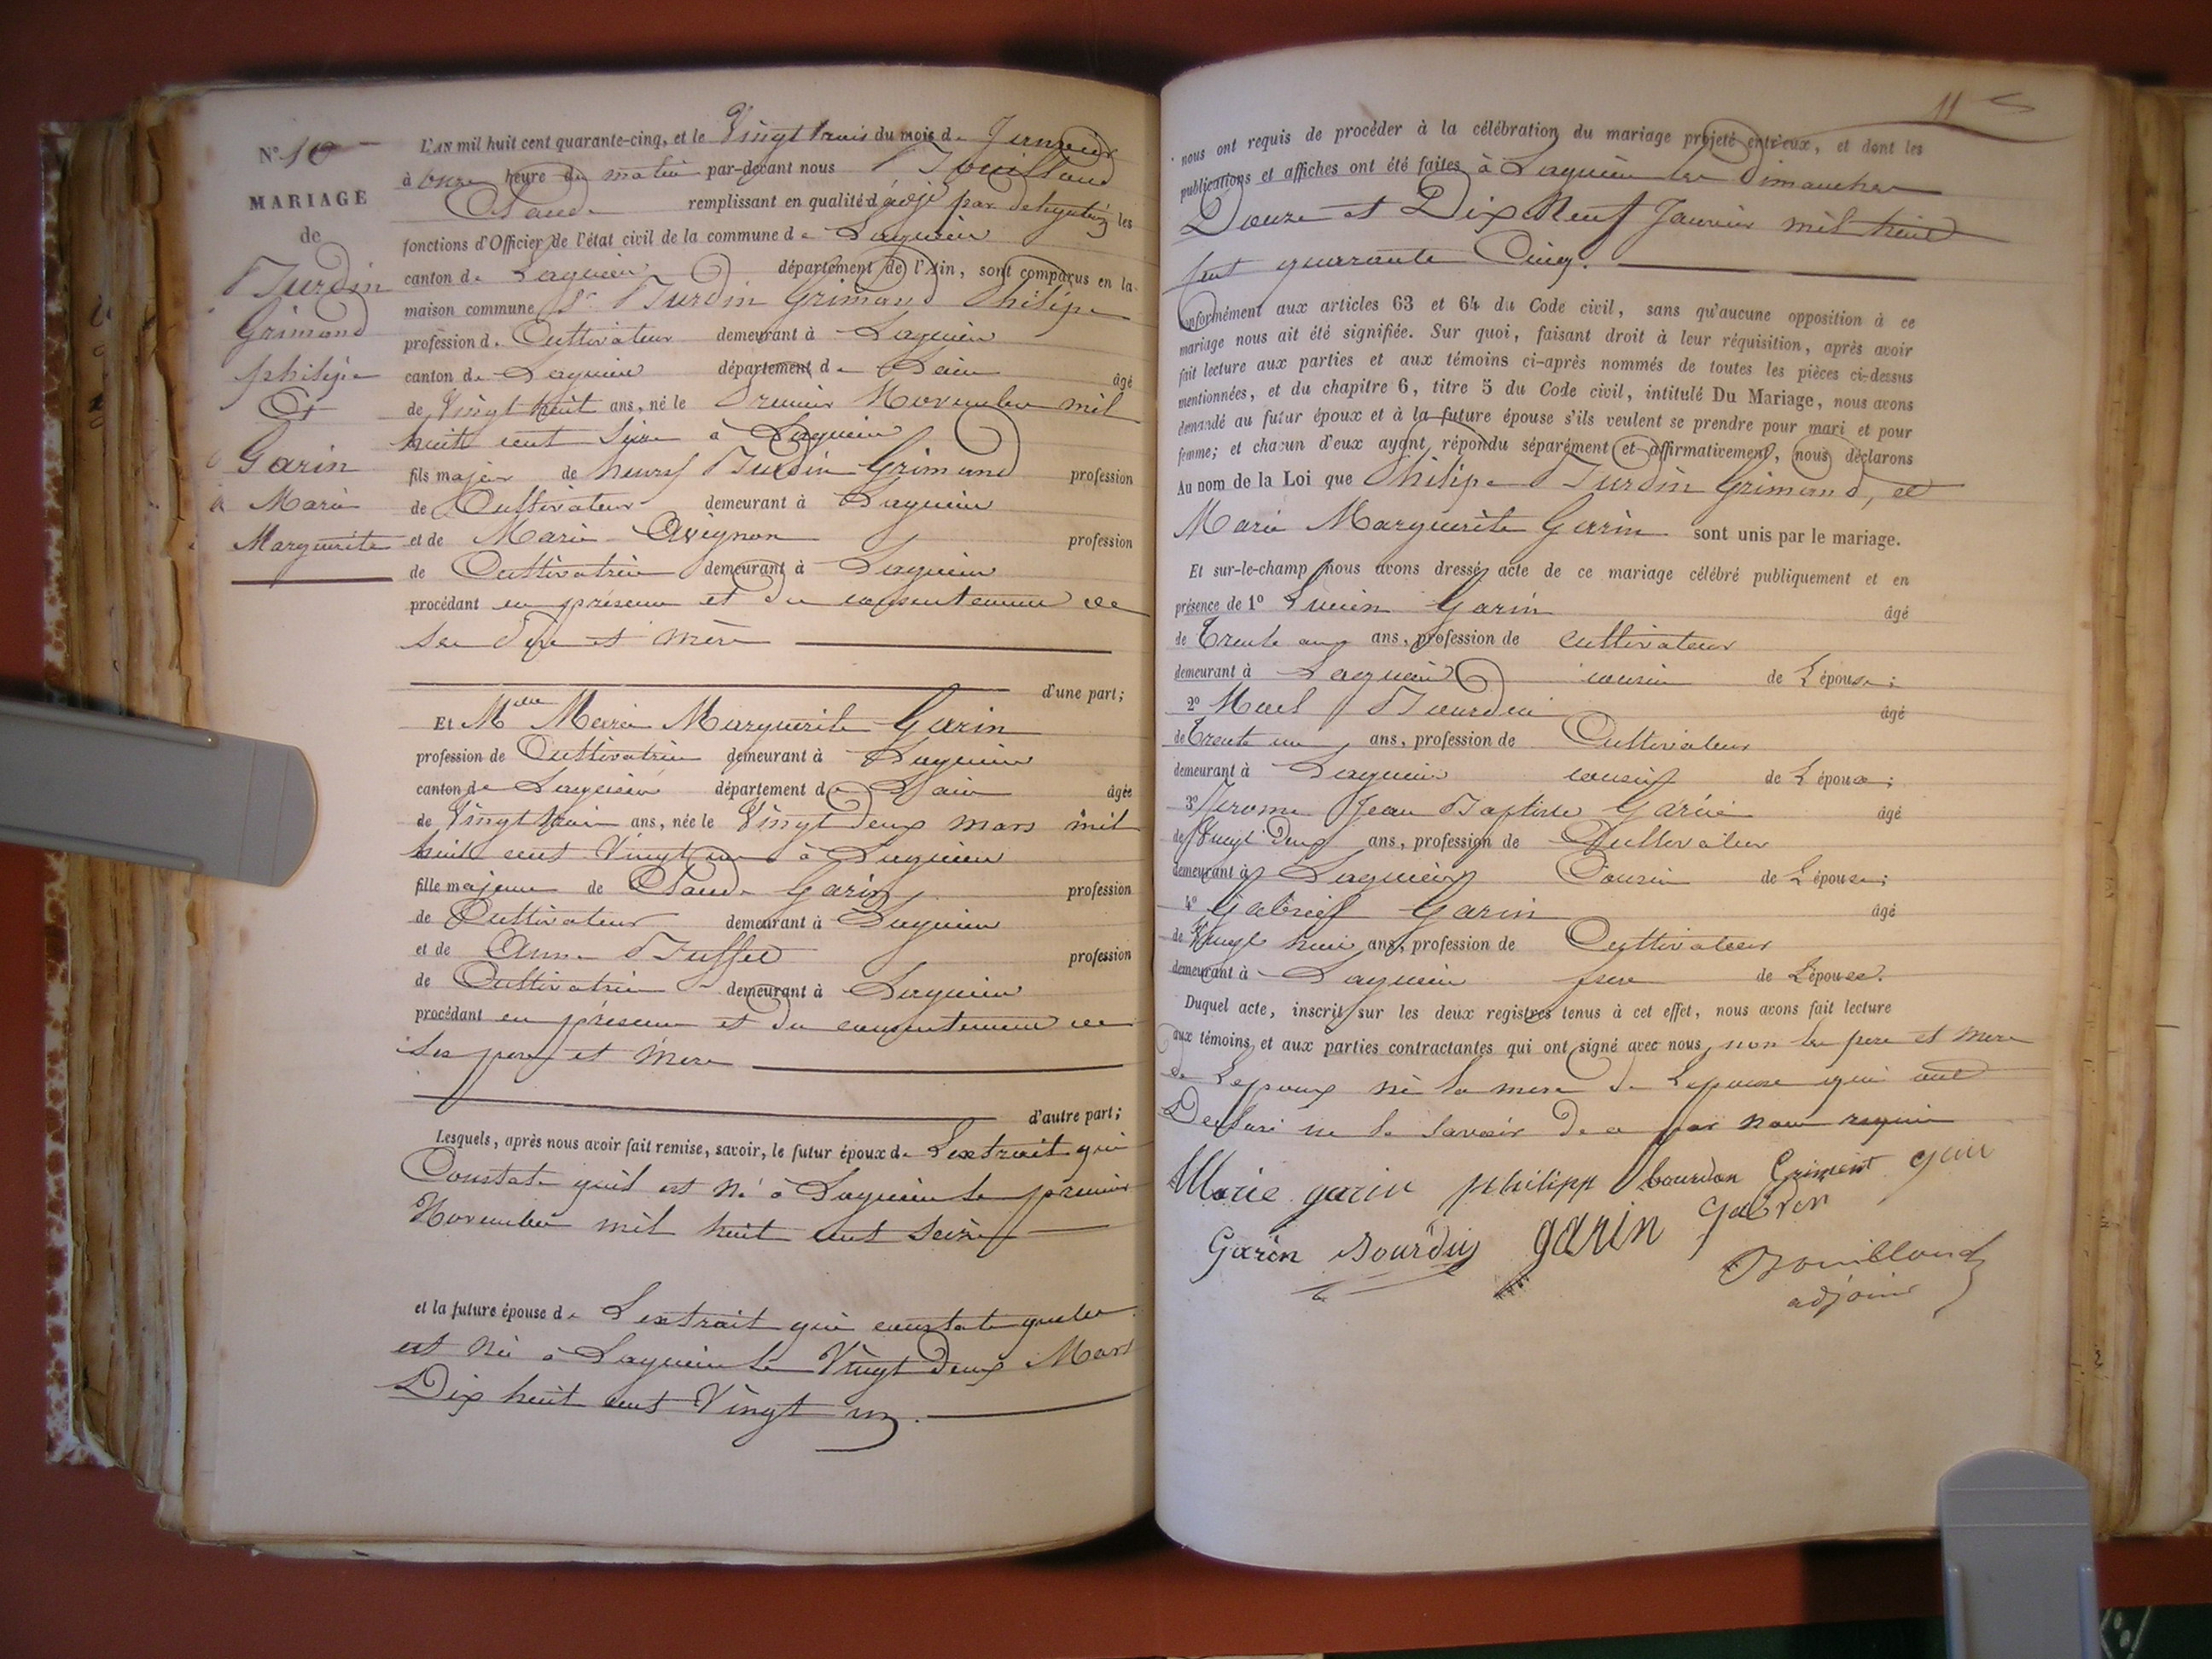 N° 10
MARIAGE
de
Burdin
Grimand
philipe
Et
Garin
Marie
Marguerite
L'AN mil huit cent quarante-cinq, et le Vingt trois du mois de Janvier
à onze heure du matin par-devant nous Bouilloud
Claude remplissant en qualité d'adjt par délégation les
fonctions d'Officier de l'état civil de la commune de Lagnieu
canton de Lagnieu département de l'Ain, sont comparus en la
maison commune Sr Burdin Grimand Philipe
profession de Cultivateur demeurant à Lagnieu
canton de Lagnieu département de Lain âgé
de Vingt huit ans, né le Premier Novembre mil
huit cent Seize à Lagnieu
fils majeur de Burdin Grimand profession
de Cultivateur demeurant à Lagnieu
et de Marie Avignon profession
de Cultivatrice demeurant à Lagnieu
procédant en présence et du consentement de
ses Père et mère
d'une part;
Et Melle Marie Marguerite Garin
profession de Cultivatrice demeurant à Lagnieu
canton de Lagnieu département de Lain âgée
de Vingt trois ans, née le Vingt Deux mars mil
huit cent Vingt un à Lagnieu
fille majeure de Claude Garin profession
de Cultivateur demeurant à Lagnieu
et de Anne Buffet profession
de Cultivatrice demeurant à Lagnieu
procédant en présence et du consentement de
ses père et mère
d'autre part;
Lesquels, après nous avoir fait remise, savoir, le futur époux de Lextrait qui
Constate quil est né à Lagnieu le premier
Novembre mil huit cent Seize
et la future épouse de Lextrait qui constate quelle
est née à Lagnieu le Vingt Deux Mars
Dix huit cent Vingt un.
11
nous ont requis de procéder à la célébration du mariage projeté entr'eux, et dont les
publications et affiches ont été faites à Lagnieu les Dimanches
Douze et Dix Neuf Janvier mil huit
cent quarante Cinq.
conformément aux articles 63 et 64 du Code civil, sans qu'aucune opposition à ce
mariage nous ait été signifiée. Sur quoi, faisant droit à leur réquisition, après avoir
fait lecture aux parties et aux témoins ci-après nommés de toutes les pièces ci-dessus
mentionnées, et du chapitre 6, titre 5 du Code civil, intitulé Du Mariage, nous avons
demandé au futur époux et à la future épouse s'ils veulent se prendre pour mari et pour
femme; et chacun d'eux ayant répondu séparément et affirmativement, nous déclarons
Au nom de la Loi que Philipe Burdin Grimand, et
Marie Marguerite Garin sont unis par le mariage.
Et sur-le-champ nous avons dressé acte de ce mariage célébré publiquement et en
présence de 1° Lucien Garin âgé
de Trente ans ans, profession de cultivateur
demeurant à Lagnieu cousin de Lépouse;
2° Bourdin âgé
de Trente un ans, profession de Cultivateur
demeurant à Lagnieu cousin de Lépoux;
3° Jerome Jean Baptiste Garin âgé
de Vingt Deux ans, profession de Cultivateur
demeurant à Lagnieu Cousin de Lépouse;
4° Gabriel Garin âgé
de Vingt huit ans, profession de Cultivateur
demeurant à Lagnieu frere de Lépouse.
Duquel acte, inscrit sur les deux registres tenus à cet effet, nous avons fait lecture
aux témoins et aux parties contractantes qui ont signé avec nous, non les pere et mere
de Lepoux ni la mere de Lepouse qui ont
Declaré ne le savoir de ce par nous requis
Marie garin philipp bourdon Griment
Garin Bourdin garin gabriel
Bouilloud
adjoint